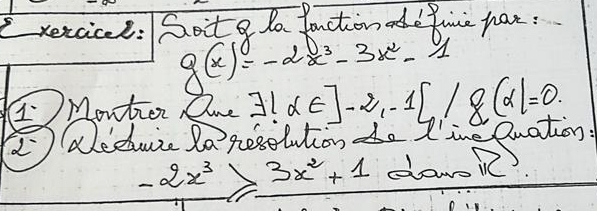 Exercice2: Soit g la fonction définie par:
g(x) = -2x³ - 3x² - 1
1- Montrer Que ∃! α ∈ ]-2,-1[ / g(α)=0.
2- Déduire la résolution de l'inéQuation:
-2x³ ⩾ 3x² + 1 dans ℝ.